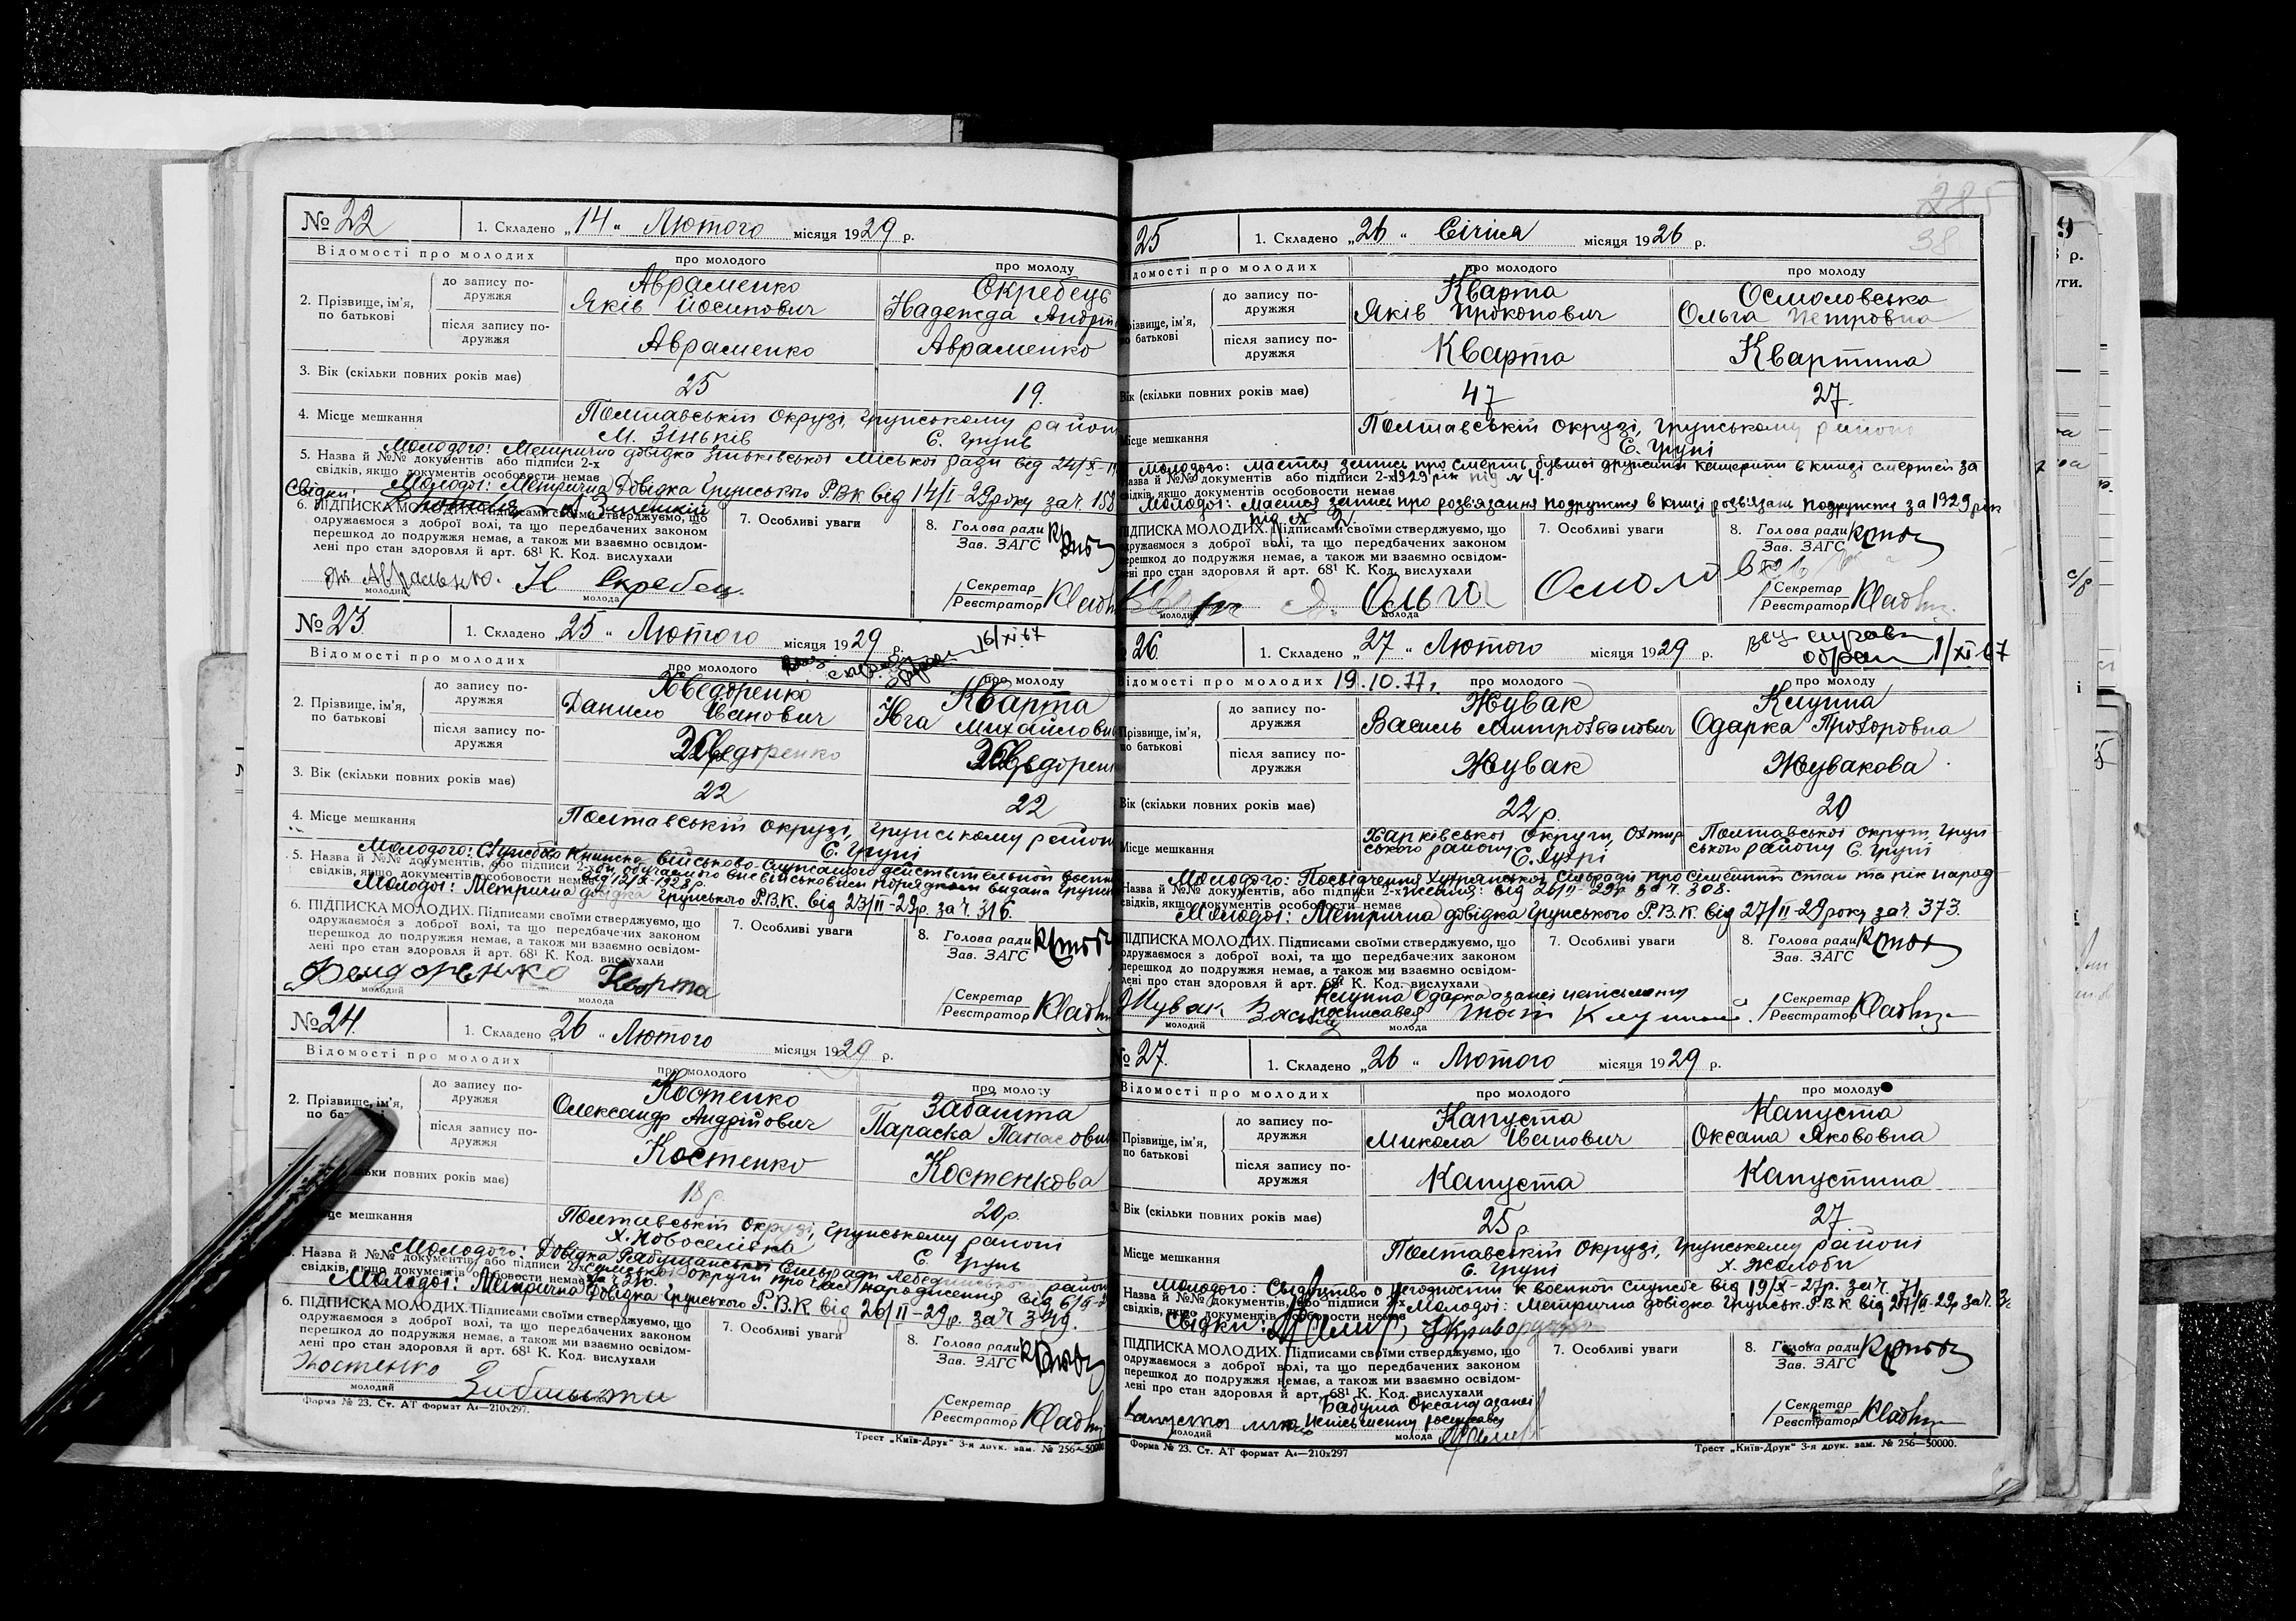 № 22
1. Складено „14" Лютого місяця 1929 р.
Відомості про молодих
про молодого
про молоду
2. Прізвище, ім'я, по батькові
до запису по-
дружжя
Авраменко
Яків Йосипович
Скребець
Надежда
після запису по-
дружжя
Авраменко
Авраменко
3. Вік (скільки повних років має)
25
19.
4. Місце мешкання
Полтавській Окрузі, Грунському район
М. Зіньків
С. Грунь
Молодого: Метрична довідка Зіньківської Міської ради від 24/X-
5. Назва й №№ документів або підписи 2-х
свідків, якщо документів особовости немає
Молодої: Метрична Довідка Грунського Р.В.К від 14/I-29 року за ч. 158
Свідки:
6. ПІДПИСКА МОЛОДИХ. Підписами своїми стверджуємо, що
одружаємося з доброї волі, та що передбачених законом
перешкод до подружжя немає, а також ми взаємно освідом-
лені про стан здоровля й арт. 68¹ К. Код. вислухали
7. Особливі уваги
8. Голова ради
Зав. ЗАГС
Н Скребец
молодий
молода
Секретар
Реєстратор
№ 23.
1. Складено „25" Лютого місяця 1929 р.
16/XI 67
Відомості про молодих
про молодого
про молоду
2. Прізвище, ім'я,
по батькові
до запису по-
дружжя
Хведоренко
Данило Іванович
Кварта
Михайлов
після запису по-
дружжя
Хведоренко
3. Вік (скільки повних років має)
22
22
4. Місце мешкання
Полтавській окрузі, Грунському район
С. Груні
5. Назва й №№ документів, або підписи 2-х
свідків, якщо документів особовости немає
від 12/X-1928 р.
Молодої: Метрична довідка Грунського Р.В.К. від 23/II-29р. за ч. 316.
6. ПІДПИСКА МОЛОДИХ. Підписами своїми стверджуємо, що
одружаємося з доброї волі, та що передбачених законом
перешкод до подружжя немає, а також ми взаємно освідом-
лені про стан здоровля й арт. 68¹ К. Код. вислухали
7. Особливі уваги
8. Голова ради
Зав. ЗАГС
Кварта
молодий
молода
Секретар
Реєстратор
№ 24.
1. Складено „26" Лютого місяця 1929 р.
Відомості про молодих
про молодого
про молоду
2. Прізвище, ім'я,
до запису по-
дружжя
Костенко
Олександр Андрійович
Забашта
Параска Панасовн
після запису по-
дружжя
Костенко
Костенкова
повних років має)
18 р.
20 р.
мешкання
Полтавській окрузі, Грунському районі
х. Новоселівка
С. Грунь
Назва й №№ документів, або підписи 2-х
свідків, якщо документів особовости немає
Молодої: Метрична Довідка Грунського Р.В.К від 26/II-29 р. за ч 349.
6. ПІДПИСКА МОЛОДИХ. Підписами своїми стверджуємо, що
одружаємося з доброї волі, та що передбачених законом
перешкод до подружжя немає, а також ми взаємно освідом-
лені про стан здоровля й арт. 68¹ К. Код. вислухали
7. Особливі уваги
8. Голова ради
Зав. ЗАГС
Костенко
Забашта
молодий
Секретар
Реєстратор
Форма № 23. Ст. АТ формат А4—210х297.
Трест „Київ-Друк" 3-я друк. зам. № 256—50000
285
38
25
1. Складено „26" Січня місяця 1926 р.
домості про молодих
про молодого
про молоду
різвище, ім'я,
по батькові
до запису по-
дружжя
Кварта
Яків Прокопович
Осмоловська
Ольга Петровна
після запису по-
дружжя
Кварта
Квартина
Вік (скільки повних років має)
47
27.
Місце мешкання
Полтавській окрузі, Грунському районі
С. Груні
Молодого: Мається запись про смерть бувшої дружини Катерини в книзі смертей за
1929 рік під № 4.
азва й №№ документів або підписи 2-х
свідків, якщо документів особовости немає
Молодої: Мається запись про розвязання подружжя в книзі розвязань подружжя за 1929 рік
під № 2.
ПІДПИСКА МОЛОДИХ. Підписами своїми стверджуємо, що
одружаємося з доброї волі, та що передбачених законом
перешкод до подружжя немає, а також ми взаємно освідом-
лені про стан здоровля й арт. 68¹ К. Код. вислухали
7. Особливі уваги
8. Голова ради
Зав. ЗАГС
Ольга
молодий
молода
Секретар
Реєстратор
26.
1. Складено „27" Лютого місяця 1929 р.
1/XI 67
Відомості про молодих
19.10.77.
про молодого
про молоду
Прізвище, ім'я,
по батькові
до запису по-
дружжя
Жувак
Василь Митрофанович
Клунна
Одарка Прохоровна
після запису по-
дружжя
Жувак
Жувакова
Вік (скільки повних років має)
22р.
20
Місце мешкання
Харківської Округи, Охтир
ського району С. Хухрі
Полтавської округи, Грун-
ського району С. Груні
Молодого: Посвідчення Хухрянської Сільради про сімейний стан та рік народ-
Назва й №№ документів, або підписи 2-х
свідків, якщо документів особовости немає
ження: від 26/II-29р за ч. 308.
Молодої: Метрична довідка Грунського Р.В.К. від 27/II-29 року за ч. 373.
ПІДПИСКА МОЛОДИХ. Підписами своїми стверджуємо, що
одружаємося з доброї волі, та що передбачених законом
перешкод до подружжя немає, а також ми взаємно освідом-
лені про стан здоровля й арт. 68¹ К. Код. вислухали
7. Особливі уваги
8. Голова ради
Зав. ЗАГС
Жувак
молодий
молода
Секретар
Реєстратор
№ 27.
1. Складено „26" Лютого місяця 1929 р.
Відомості про молодих
про молодого
про молоду
Прізвище, ім'я,
по батькові
до запису по-
дружжя
Капуста
Микола Іванович
Капуста
Оксана Яковovна
після запису по-
дружжя
Капуста
Капустина
Вік (скільки повних років має)
25р.
27.
Місце мешкання
Полтавській Окрузі, Грунському районі
С. Груні
х. Жолоби
Молодого: Свидетство о негодности к военной службе від 19/X-27р. за ч. 71
Назва й №№ документів, або підписи 2-х
Молодої: Метрична довідка Грунськ. Р.В.К від 27/II-29р за ч.
свідків, якщо документів особовости немає
Свідки:
ПІДПИСКА МОЛОДИХ. Підписами своїми стверджуємо, що
одружаємося з доброї волі, та що передбачених законом
перешкод до подружжя немає, а також ми взаємно освідом-
лені про стан здоровля й арт. 68¹ К. Код. вислухали
7. Особливі уваги
8. Голова ради
Зав. ЗАГС
Капуста
молодий
молода
Секретар
Реєстратор
Форма № 23. Ст. АТ формат А4—210х297
Трест „Київ-Друк" 3-я друк. зам. № 256—50000.